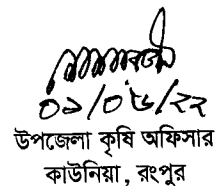 ০১/০৮/২২
উপজেলা কৃষি অফিসার
কাউনিয়া, রংপুর